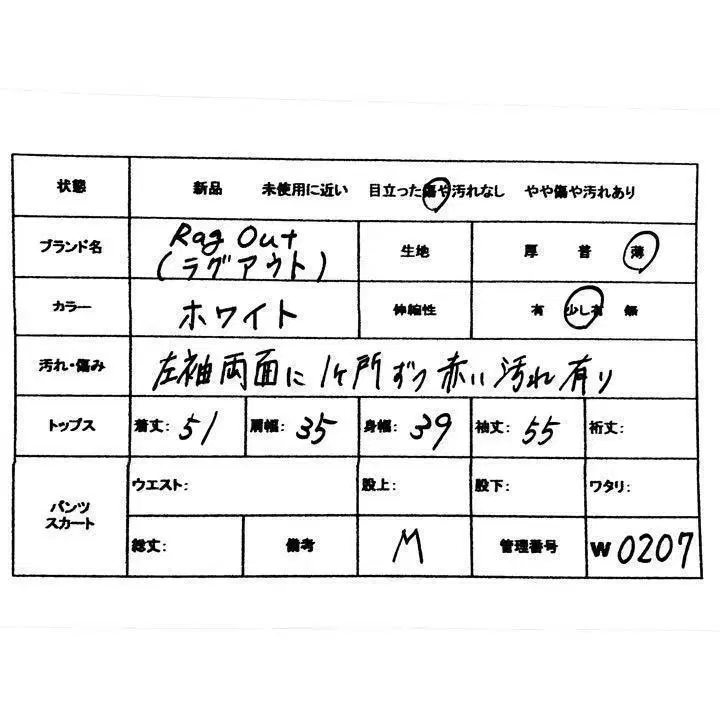 状態 新品 未使用に近い 目立った傷や汚れなし やや傷や汚れあり
ブランド名 Rag Out 生地 厚 普 薄
(ラグアウト)
カラー ホワイト 伸縮性 有 少し有 無
汚れ・傷み 左袖両面に1ヶ所ずつ赤い汚れ有り
トップス 着丈: 51 肩幅: 35 身幅: 39 袖丈: 55 裄丈:
パンツ ウエスト: 股上: 股下: ワタリ:
スカート
総丈: 備考 M 管理番号 W0207